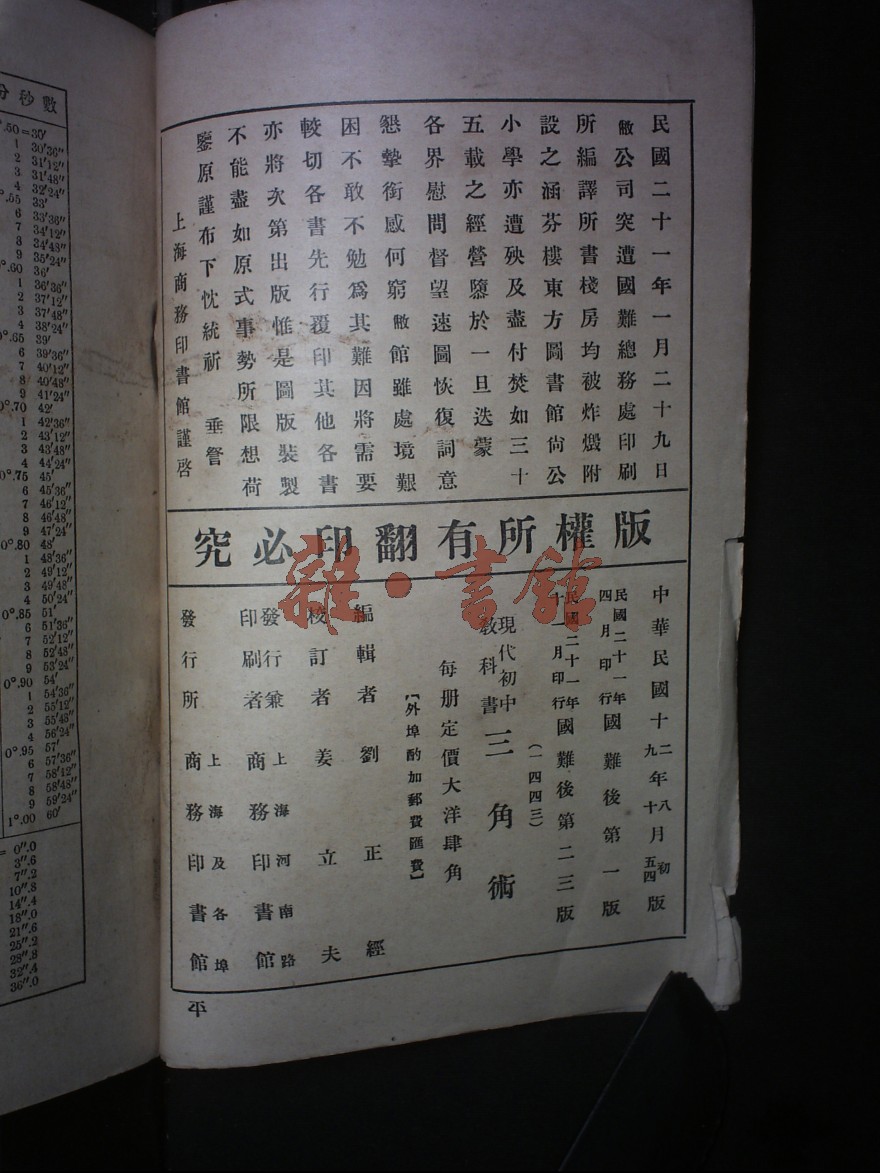 民國二十一年一月二十九日
敝公司突遭國難總務處印刷
所編譯所書棧房均被炸燬附
設之涵芬樓東方圖書館尙公
小學亦遭殃及盡付焚如三十
五載之經營隳於一旦迭蒙
各界慰問督望速圖恢復詞意
懇摯銜感何窮敝館雖處境艱
困不敢不勉爲其難因將需要
較切各書先行覆印其他各書
亦將次第出版惟是圖版裝製
不能盡如原式事勢所限想荷
鑒原謹布下忱統祈 垂詧
上海商務印書館謹啓
究必印翻有所權版
中華民國十二年八月初版
九 十 五四
民國二十一年四月印行 國難後第一版
民國二十一年十一月印行 國難後第二三版
(一四四三)
現代初中教科書 三角術
每册定價大洋肆角
【外埠酌加郵費匯費】
編輯者 劉正經
校訂者 姜立夫
發行兼印刷者 上海河南路 商務印書館
發行所 上海及各埠 商務印書館
雜·書館
分秒數
0°.50=30′
1 30′36″
2 31′12″
3 31′48″
4 32′24″
0°.55 33′
6 33′36″
7 34′12″
8 34′48″
9 35′24″
0°.60 36′
1 36′36″
2 37′12″
3 37′48″
4 38′24″
0°.65 39′
6 39′36″
7 40′12″
8 40′48″
9 41′24″
0°.70 42′
1 42′36″
2 43′12″
3 43′48″
4 44′24″
0°.75 45′
6 45′36″
7 46′12″
8 46′48″
9 47′24″
0°.80 48′
1 48′36″
2 49′12″
3 49′48″
4 50′24″
0°.85 51′
6 51′36″
7 52′12″
8 52′48″
9 53′24″
0°.90 54′
1 54′36″
2 55′12″
3 55′48″
4 56′24″
0°.95 57′
6 57′36″
7 58′12″
8 58′48″
9 59′24″
1°.00 60′
= 0″.0
3″.6
7″.2
10″.8
14″.4
18″.0
21″.6
25″.2
28″.8
32″.4
36″.0